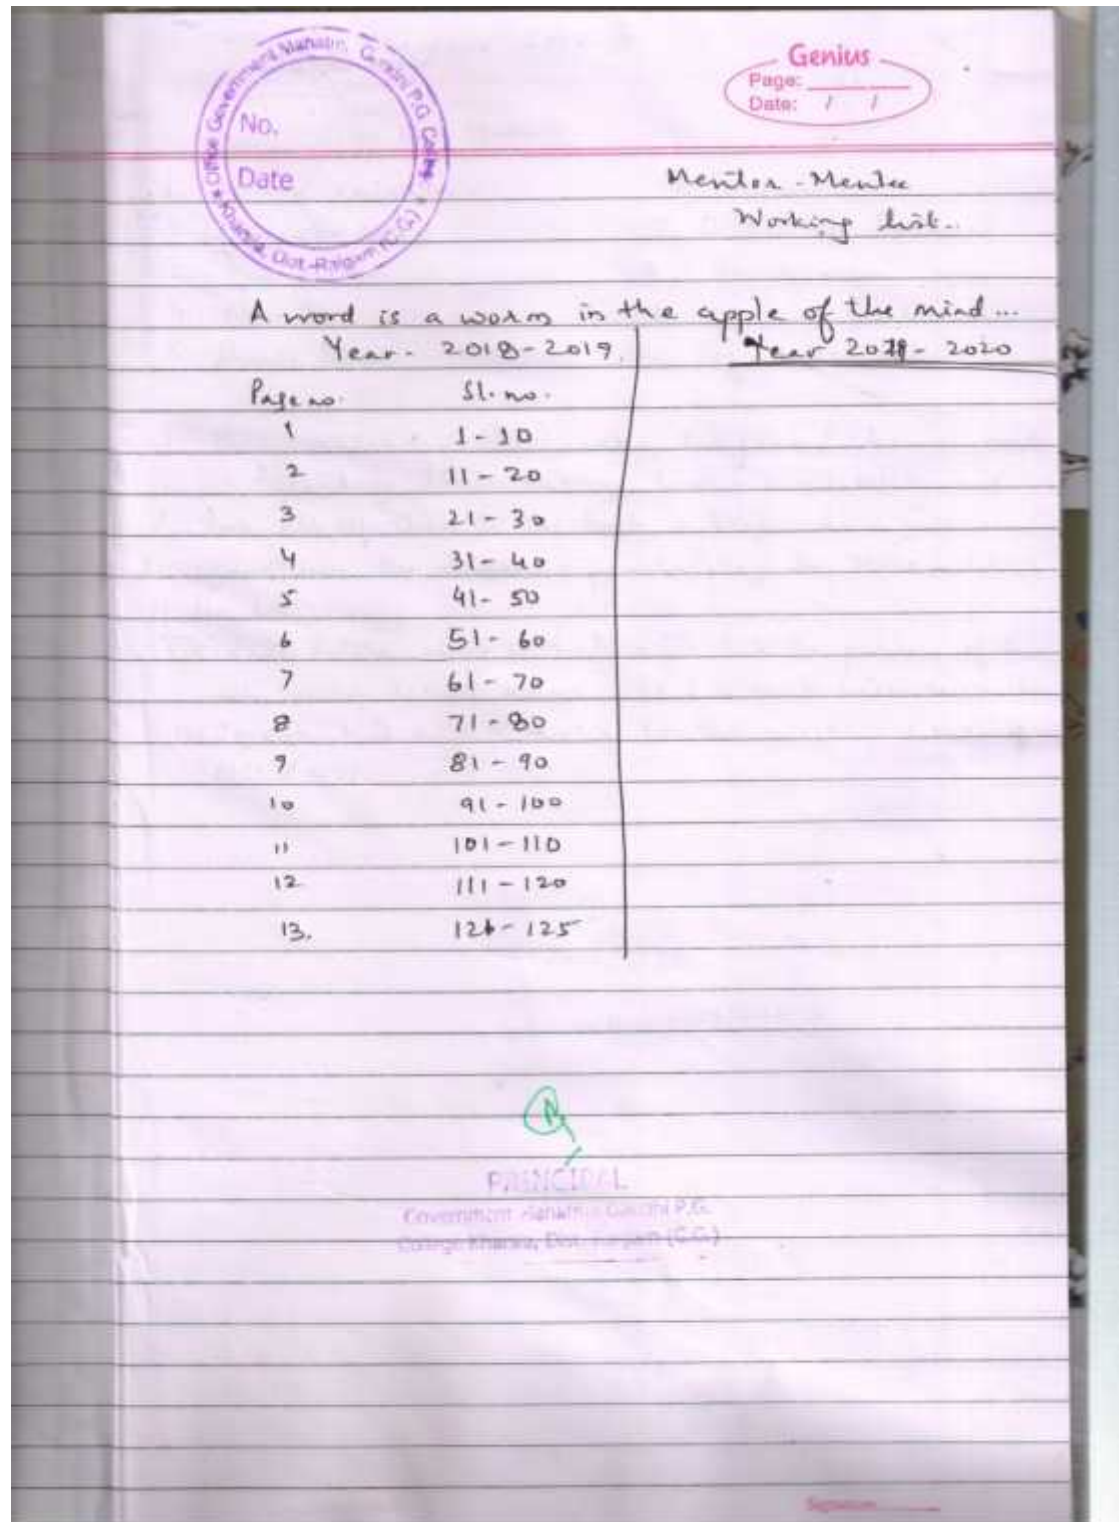 Office Government Mahatma Gandhi P.G. College
Kharsia, Dist.-Raigarh (C.G.)
No.
Date
Genius
Page:
Date: / /
Mentor-Mentee
Working list..
A word is a worm in the apple of the mind...
Year- 2018-2019 Year - 2020
Page no. Sl. no.
1 1-10
2 11-20
3 21-30
4 31-40
5 41-50
6 51-60
7 61-70
8 71-80
9 81-90
10 91-100
11 101-110
12 111-120
13. 121-125
PRINCIPAL
Government Mahatma Gandhi P.G.
College Kharsia, Dist. Raigarh (C.G.)